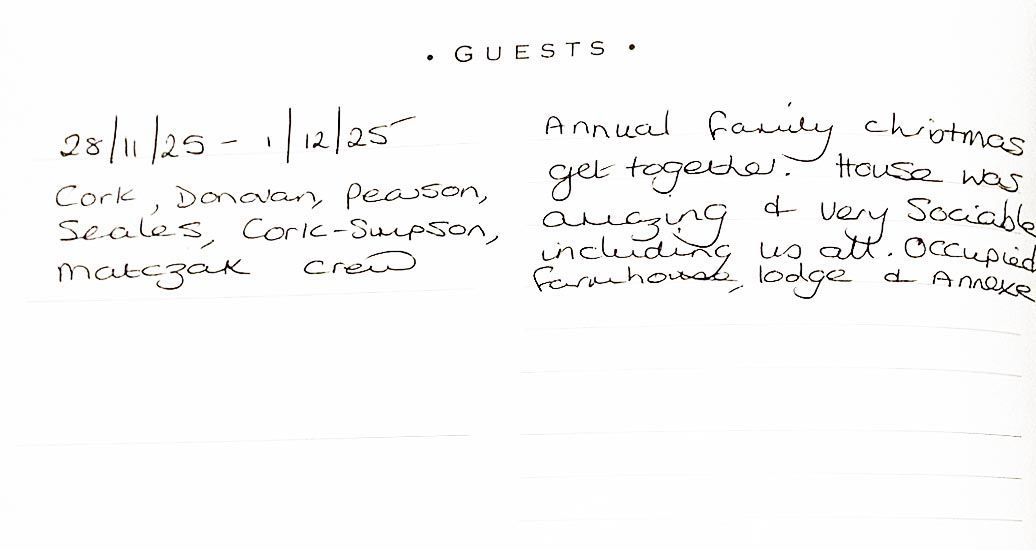 • GUESTS •
28/11/25 - 1/12/25
Cork, Donovan, Pearson,
Seales, Cork-Simpson,
Matczak crew
Annual family christmas
get together. House was
amazing & very Sociable
including us all. Occupied
farmhouse, lodge & Annexe